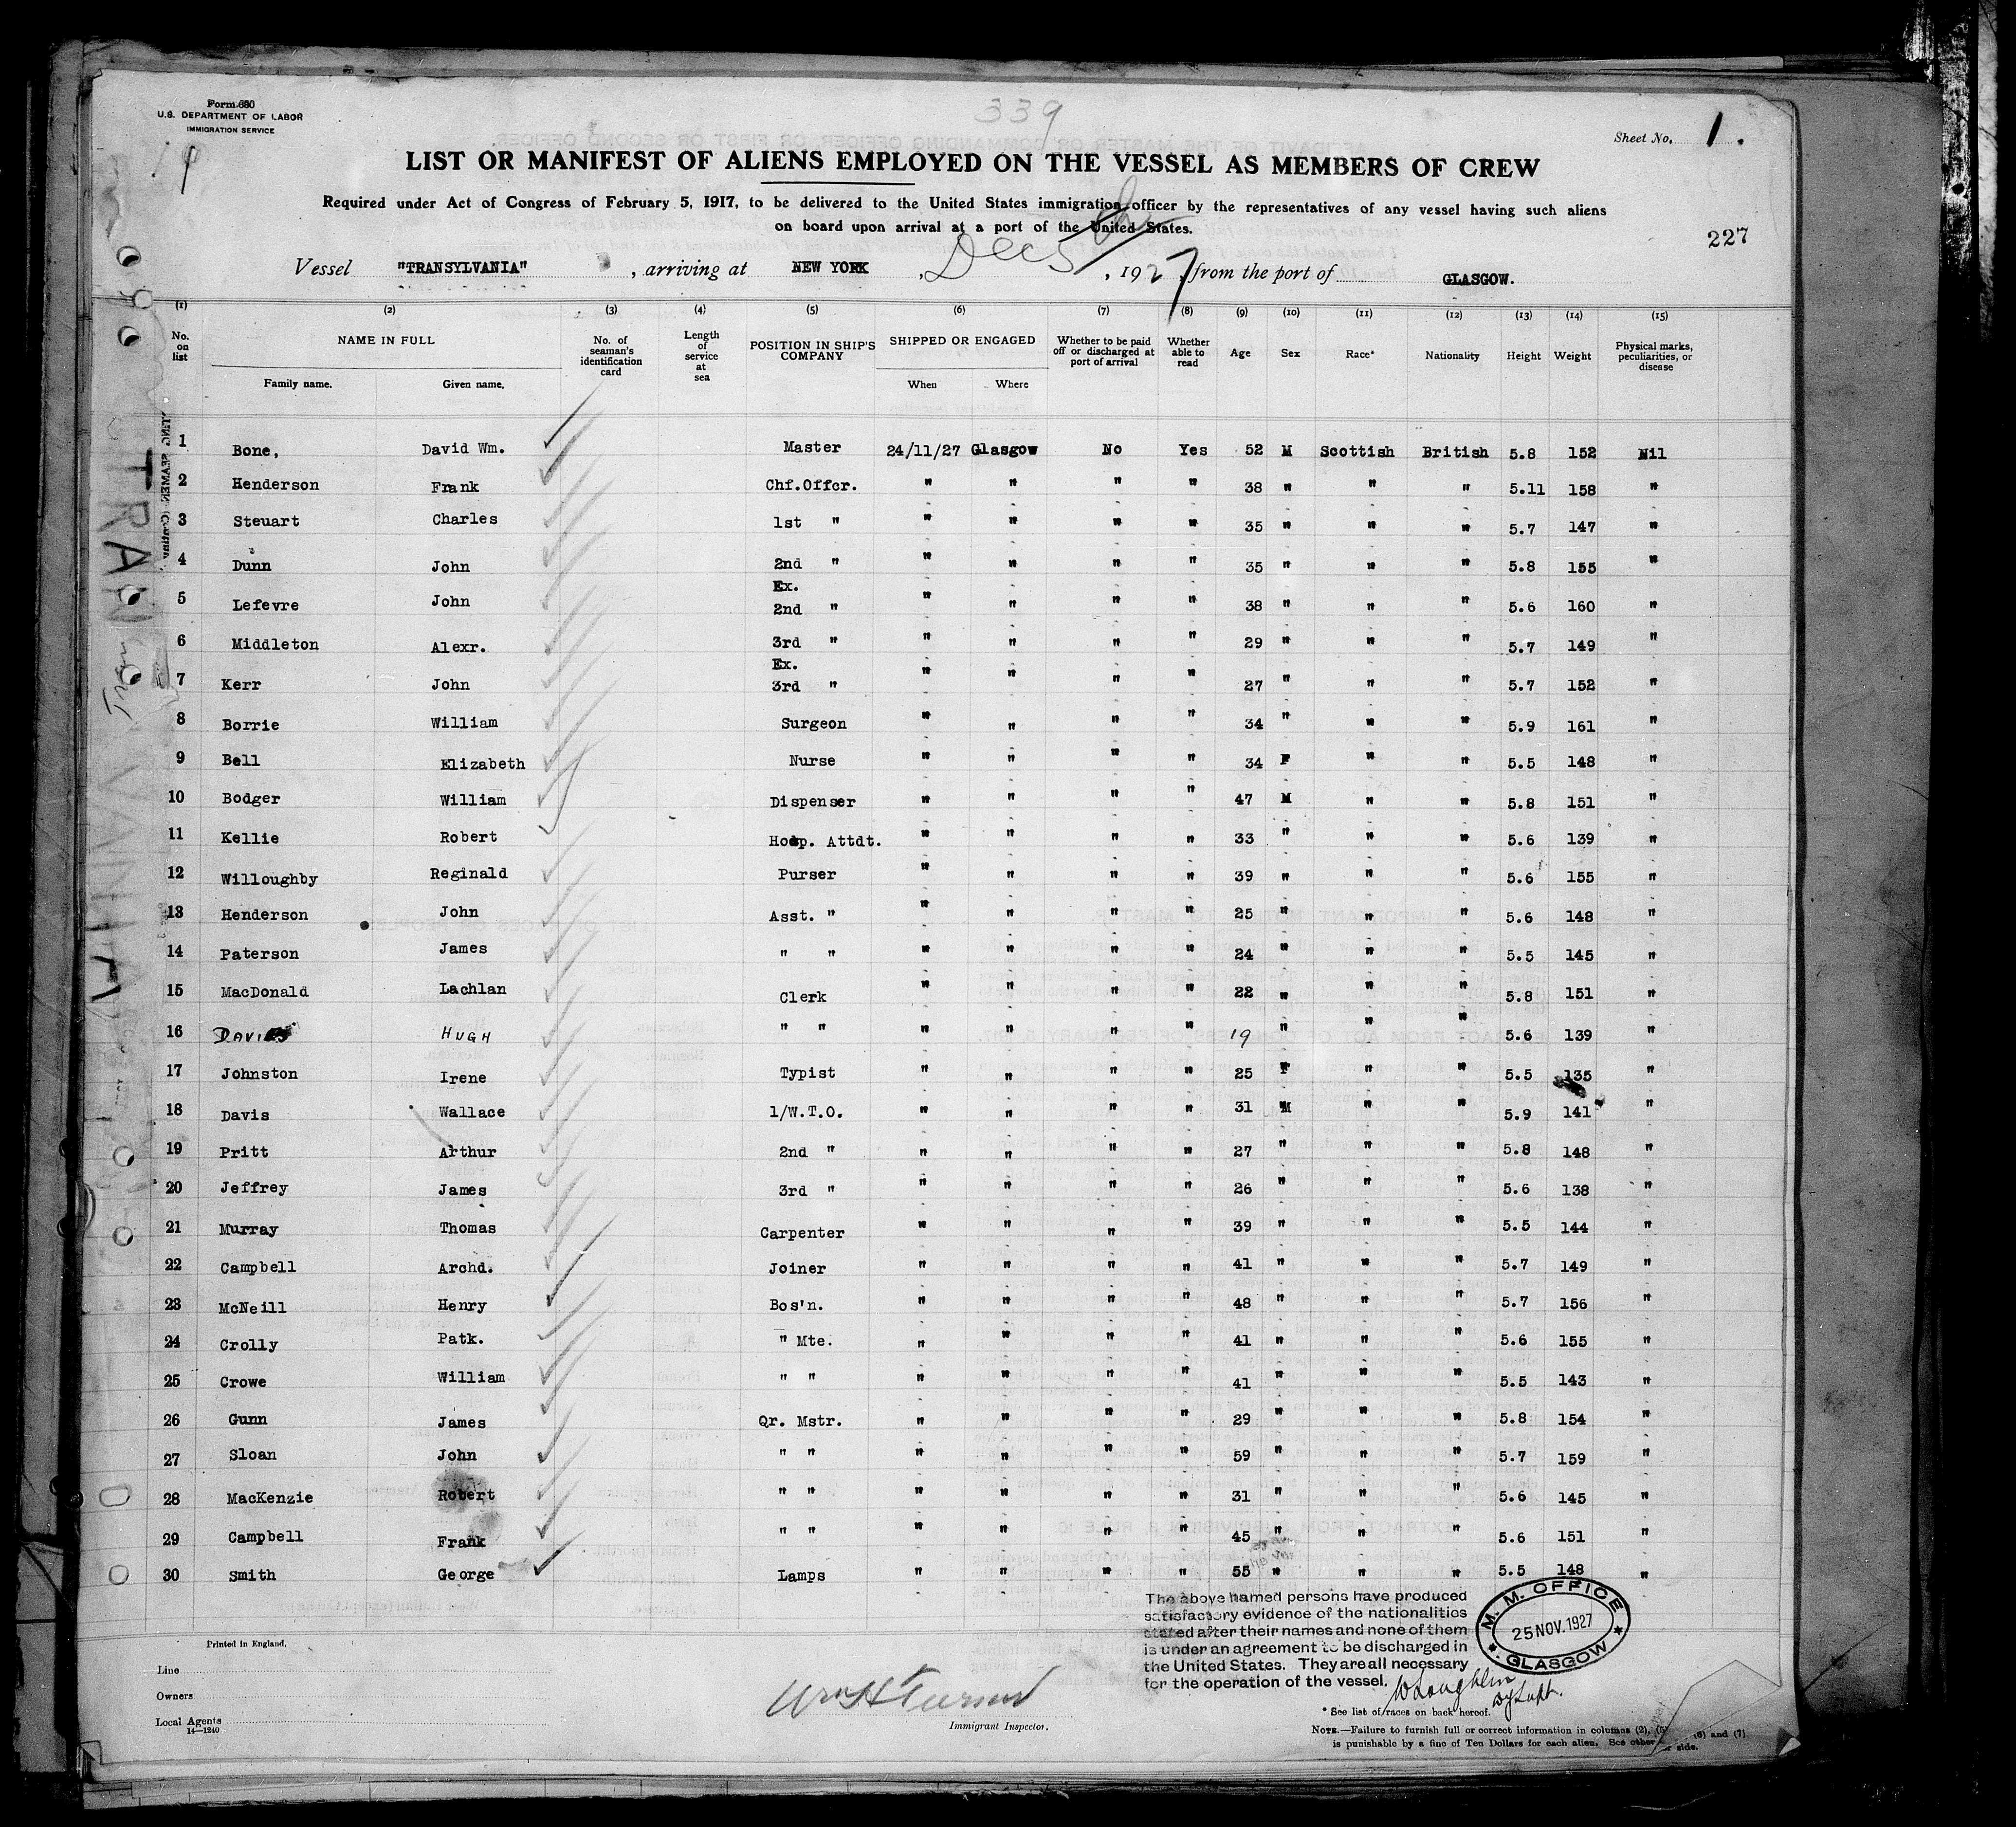 Form 680
U.S. DEPARTMENT OF LABOR
IMMIGRATION SERVICE
339
Sheet No. 1.
LIST OR MANIFEST OF ALIENS EMPLOYED ON THE VESSEL AS MEMBERS OF CREW
Required under Act of Congress of February 5, 1917, to be delivered to the United States immigration officer by the representatives of any vessel having such aliens
on board upon arrival at a port of the United States.
227
Vessel "TRANSYLVANIA" , arriving at NEW YORK , Dec 5 , 1927, from the port of GLASGOW.
(1) (2) (3) (4) (5) (6) (7) (8) (9) (10) (11) (12) (13) (14) (15)
No. on list NAME IN FULL Family name. Given name. No. of seaman's identification card Length of service at sea POSITION IN SHIP'S COMPANY SHIPPED OR ENGAGED When Where Whether to be paid off or discharged at port of arrival Whether able to read Age Sex Race* Nationality Height Weight Physical marks, peculiarities, or disease
1 Bone, David Wm. Master 24/11/27 Glasgow No Yes 52 M Scottish British 5.8 152 Nil
2 Henderson Frank Chf.Offcr. " " " " 38 " " " 5.11 158 "
3 Steuart Charles 1st " " " " " 35 " " " 5.7 147 "
4 Dunn John 2nd " " " " " 35 " " " 5.8 155 "
5 Lefevre John Ex. 2nd " " " " " 38 " " " 5.6 160 "
6 Middleton Alexr. 3rd " " " " " 29 " " " 5.7 149 "
7 Kerr John Ex. 3rd " " " " " 27 " " " 5.7 152 "
8 Borrie William Surgeon " " " " 34 " " " 5.9 161 "
9 Bell Elizabeth Nurse " " " " 34 F " " 5.5 148 "
10 Bodger William Dispenser " " " " 47 M " " 5.8 151 "
11 Kellie Robert Hosp. Attdt. " " " " 33 " " " 5.6 139 "
12 Willoughby Reginald Purser " " " " 39 " " " 5.6 155 "
13 Henderson John Asst. " " " " " 25 " " " 5.6 148 "
14 Paterson James " " " " " " 24 " " " 5.5 145 "
15 MacDonald Lachlan Clerk " " " " 22 " " " 5.8 151 "
16 HUGH " " " " " " 19 " " " 5.6 139 "
17 Johnston Irene Typist " " " " 25 F " " 5.5 135 "
18 Davis Wallace 1/W.T.O. " " " " 31 M " " 5.9 141 "
19 Pritt Arthur 2nd " " " " " 27 " " " 5.8 148 "
20 Jeffrey James 3rd " " " " " 26 " " " 5.6 138 "
21 Murray Thomas Carpenter " " " " 39 " " " 5.5 144 "
22 Campbell Archd. Joiner " " " " 41 " " " 5.7 149 "
23 McNeill Henry Bos'n. " " " " 48 " " " 5.7 156 "
24 Crolly Patk. " Mte. " " " " 41 " " " 5.6 155 "
25 Crowe William " " " " " " 41 " " " 5.5 143 "
26 Gunn James Qr. Mstr. " " " " 29 " " " 5.8 154 "
27 Sloan John " " " " " " 59 " " " 5.7 159 "
28 MacKenzie Robert " " " " " " 31 " " " 5.6 145 "
29 Campbell Frank " " " " " " 45 " " " 5.6 151 "
30 Smith George Lamps " " " " 55 " " " 5.5 148 "
The above named persons have produced
satisfactory evidence of the nationalities
stated after their names and none of them
is under an agreement to be discharged in
the United States. They are all necessary
for the operation of the vessel.
M. M. OFFICE
25 NOV. 1927
GLASGOW
Printed in England.
Line
Owners
Local Agents
14—1240
Wm H Turner
Immigrant Inspector.
* See list of races on back hereof.
NOTE.—Failure to furnish full or correct information in columns (2), (5) (6) and (7)
is punishable by a fine of Ten Dollars for each alien. See other side.